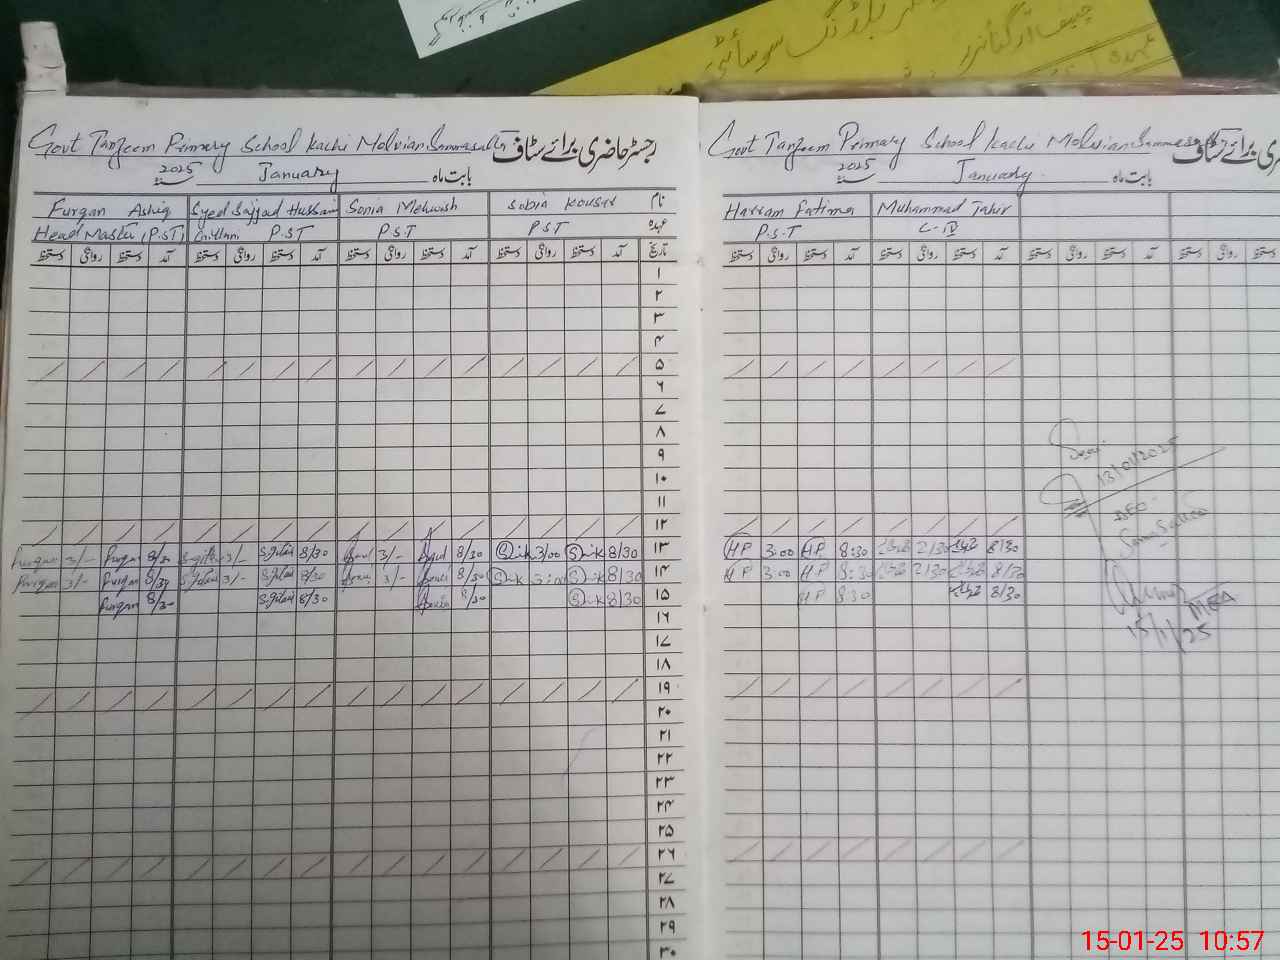 بلڈنگ سوسائٹی
چیف آرگنائزر
عہدہ
Govt Tanzeem Primary School Kachi Molvian Sammasatta رجسٹر حاضری برائے سٹاف
2025 January بابت ماہ
Furqan Ashiq Syed Sajjad Hussain Sonia Mehwish Sobia Kousar نام
Head Master (P.ST) Gillani P.S.T P.S.T P.S.T عہدہ
دستخط روانگی دستخط آمد دستخط روانگی دستخط آمد دستخط روانگی دستخط آمد دستخط روانگی دستخط آمد تاریخ
۱
۲
۳
۴
۵
۶
۷
۸
۹
۱۰
۱۱
۱۲
Furqan 3/- Furqan 8/30 3/- 8/30 3/- 8/30 S.K 3/00 S.K 8/30 ۱۳
Furqan 3/- Furqan 8/30 3/- 8/30 3/- 8/30 S.K 3:00 S.K 8/30 ۱۴
Furqan 8/30 8/30 8/30 S.K 8/30 ۱۵
۱۶
۱۷
۱۸
۱۹
۲۰
۲۱
۲۲
۲۳
۲۴
۲۵
۲۶
۲۷
۲۸
۲۹
۳۰
Govt Tanzeem Primary School Kachi Molvian Sammasatta رجسٹر حاضری برائے سٹاف
2025 January بابت ماہ
Harram Fatima Muhammad Tahir
P.S.T C-IV
دستخط روانگی دستخط آمد دستخط روانگی دستخط آمد دستخط روانگی دستخط آمد دستخط روانگی دستخط
HF 3:00 HF 8:30 2/30 8/30
HF 3:00 HF 8:30 2/30 8/30
HF 8:30 8/30
13/01/2025
AEO
Samma Satta
MEA
15/1/25
15-01-25 10:57